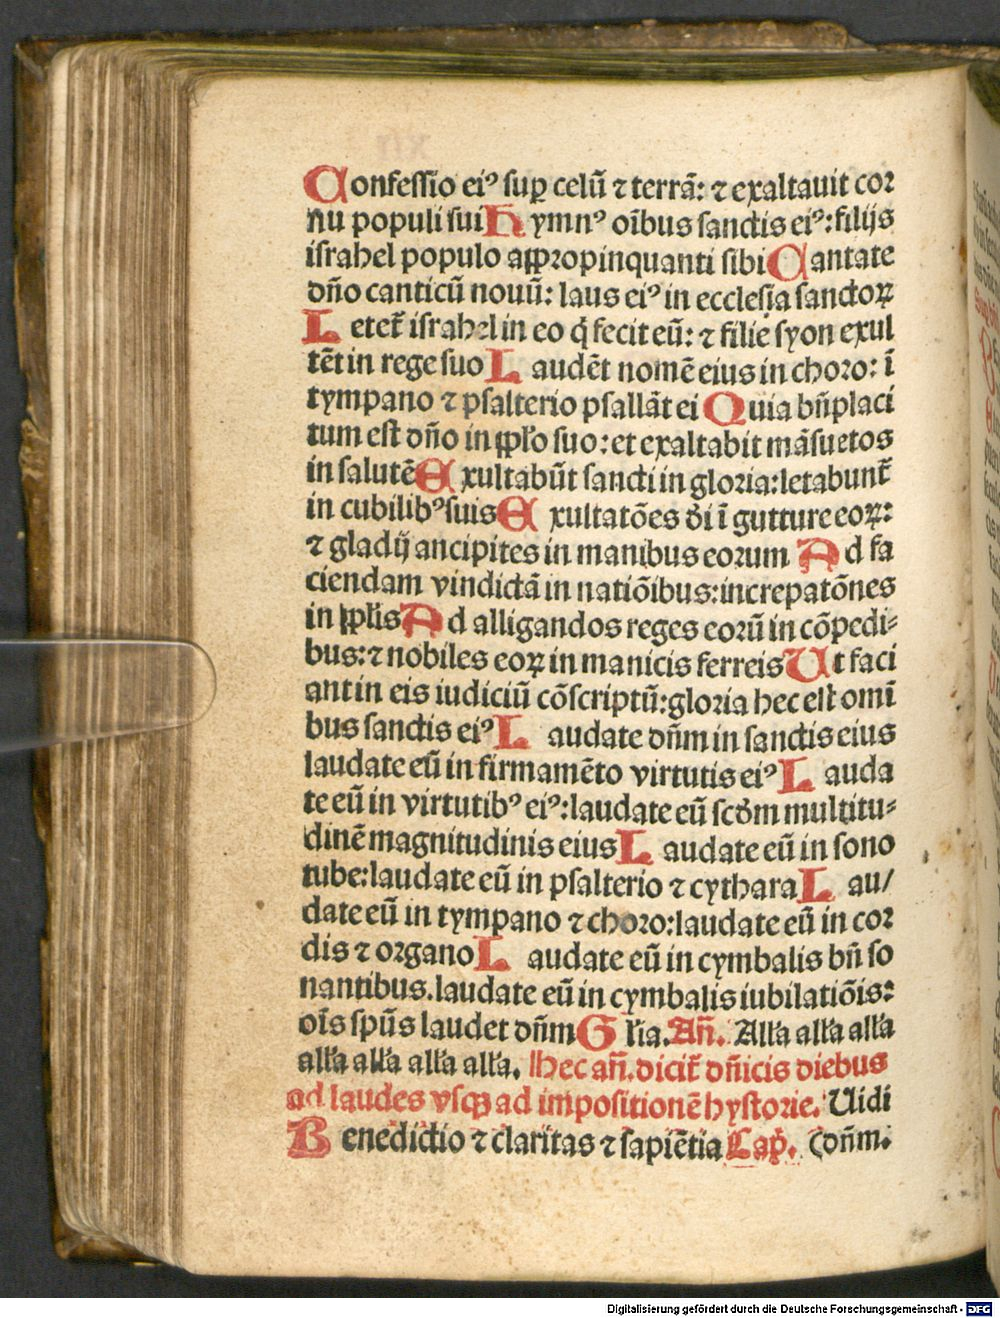 Confessio eiꝰ sup̱ celū ⁊ terrā: ⁊ exaltauit cor
nu populi sui Hymnꝰ oībus sanctis eiꝰ: filijs
israhel populo aꝓpropinquanti sibi Cantate
dño canticū nouū: laus eiꝰ in ecclesia sanctoꝝ
Letet᷑ israhel in eo q̇ fecit eū: ⁊ filie syon exul
tēt in rege suo Laudēt nomē eius in choro: ī
tympano ⁊ psalterio psallāt ei Quia bñplaci
tum est dño in pp̄lo suo: et exaltabit māsuetos
in salutē Exultabūt sancti in gloria: letabunt᷑
in cubilibꝰ suis Exultatōes di ī gutture eoꝝ:
⁊ gladij ancipites in manibus eorum Ad fa
ciendam vindictā in natiōibus: increpatōnes
in pp̄lis Ad alligandos reges eorū in cōpedi⸗
bus: ⁊ nobiles eoꝝ in manicis ferreis Ut faci
ant in eis iudiciū cōscriptū: gloria hec est omī
bus sanctis eiꝰ Laudate dñm in sanctis eius
laudate eū in firmamēto virtutis eiꝰ Lauda
te eū in virtutibꝰ eiꝰ: laudate eū scdm multitu⸗
dinē magnitudinis eius Laudate eū in sono
tube: laudate eū in psalterio ⁊ cythara Lau/
date eū in tympano ⁊ choro: laudate eū in cor
dis ⁊ organo Laudate eū in cymbalis bñ so
nantibus. laudate eū in cymbalis iubilatiōis:
oīs spūs laudet dñm Gľia. Añ. Alľa alľa alľa
alľa alľa alľa alľa. Hec añ. dicit᷑ dñicis diebus
ad laudes vsqꝫ ad impositionē hystorie. Uidi
Benedictio ⁊ claritas ⁊ sapiētia Cap̱. Ꝯdñm.
Digitalisierung gefördert durch die Deutsche Forschungsgemeinschaft - DFG